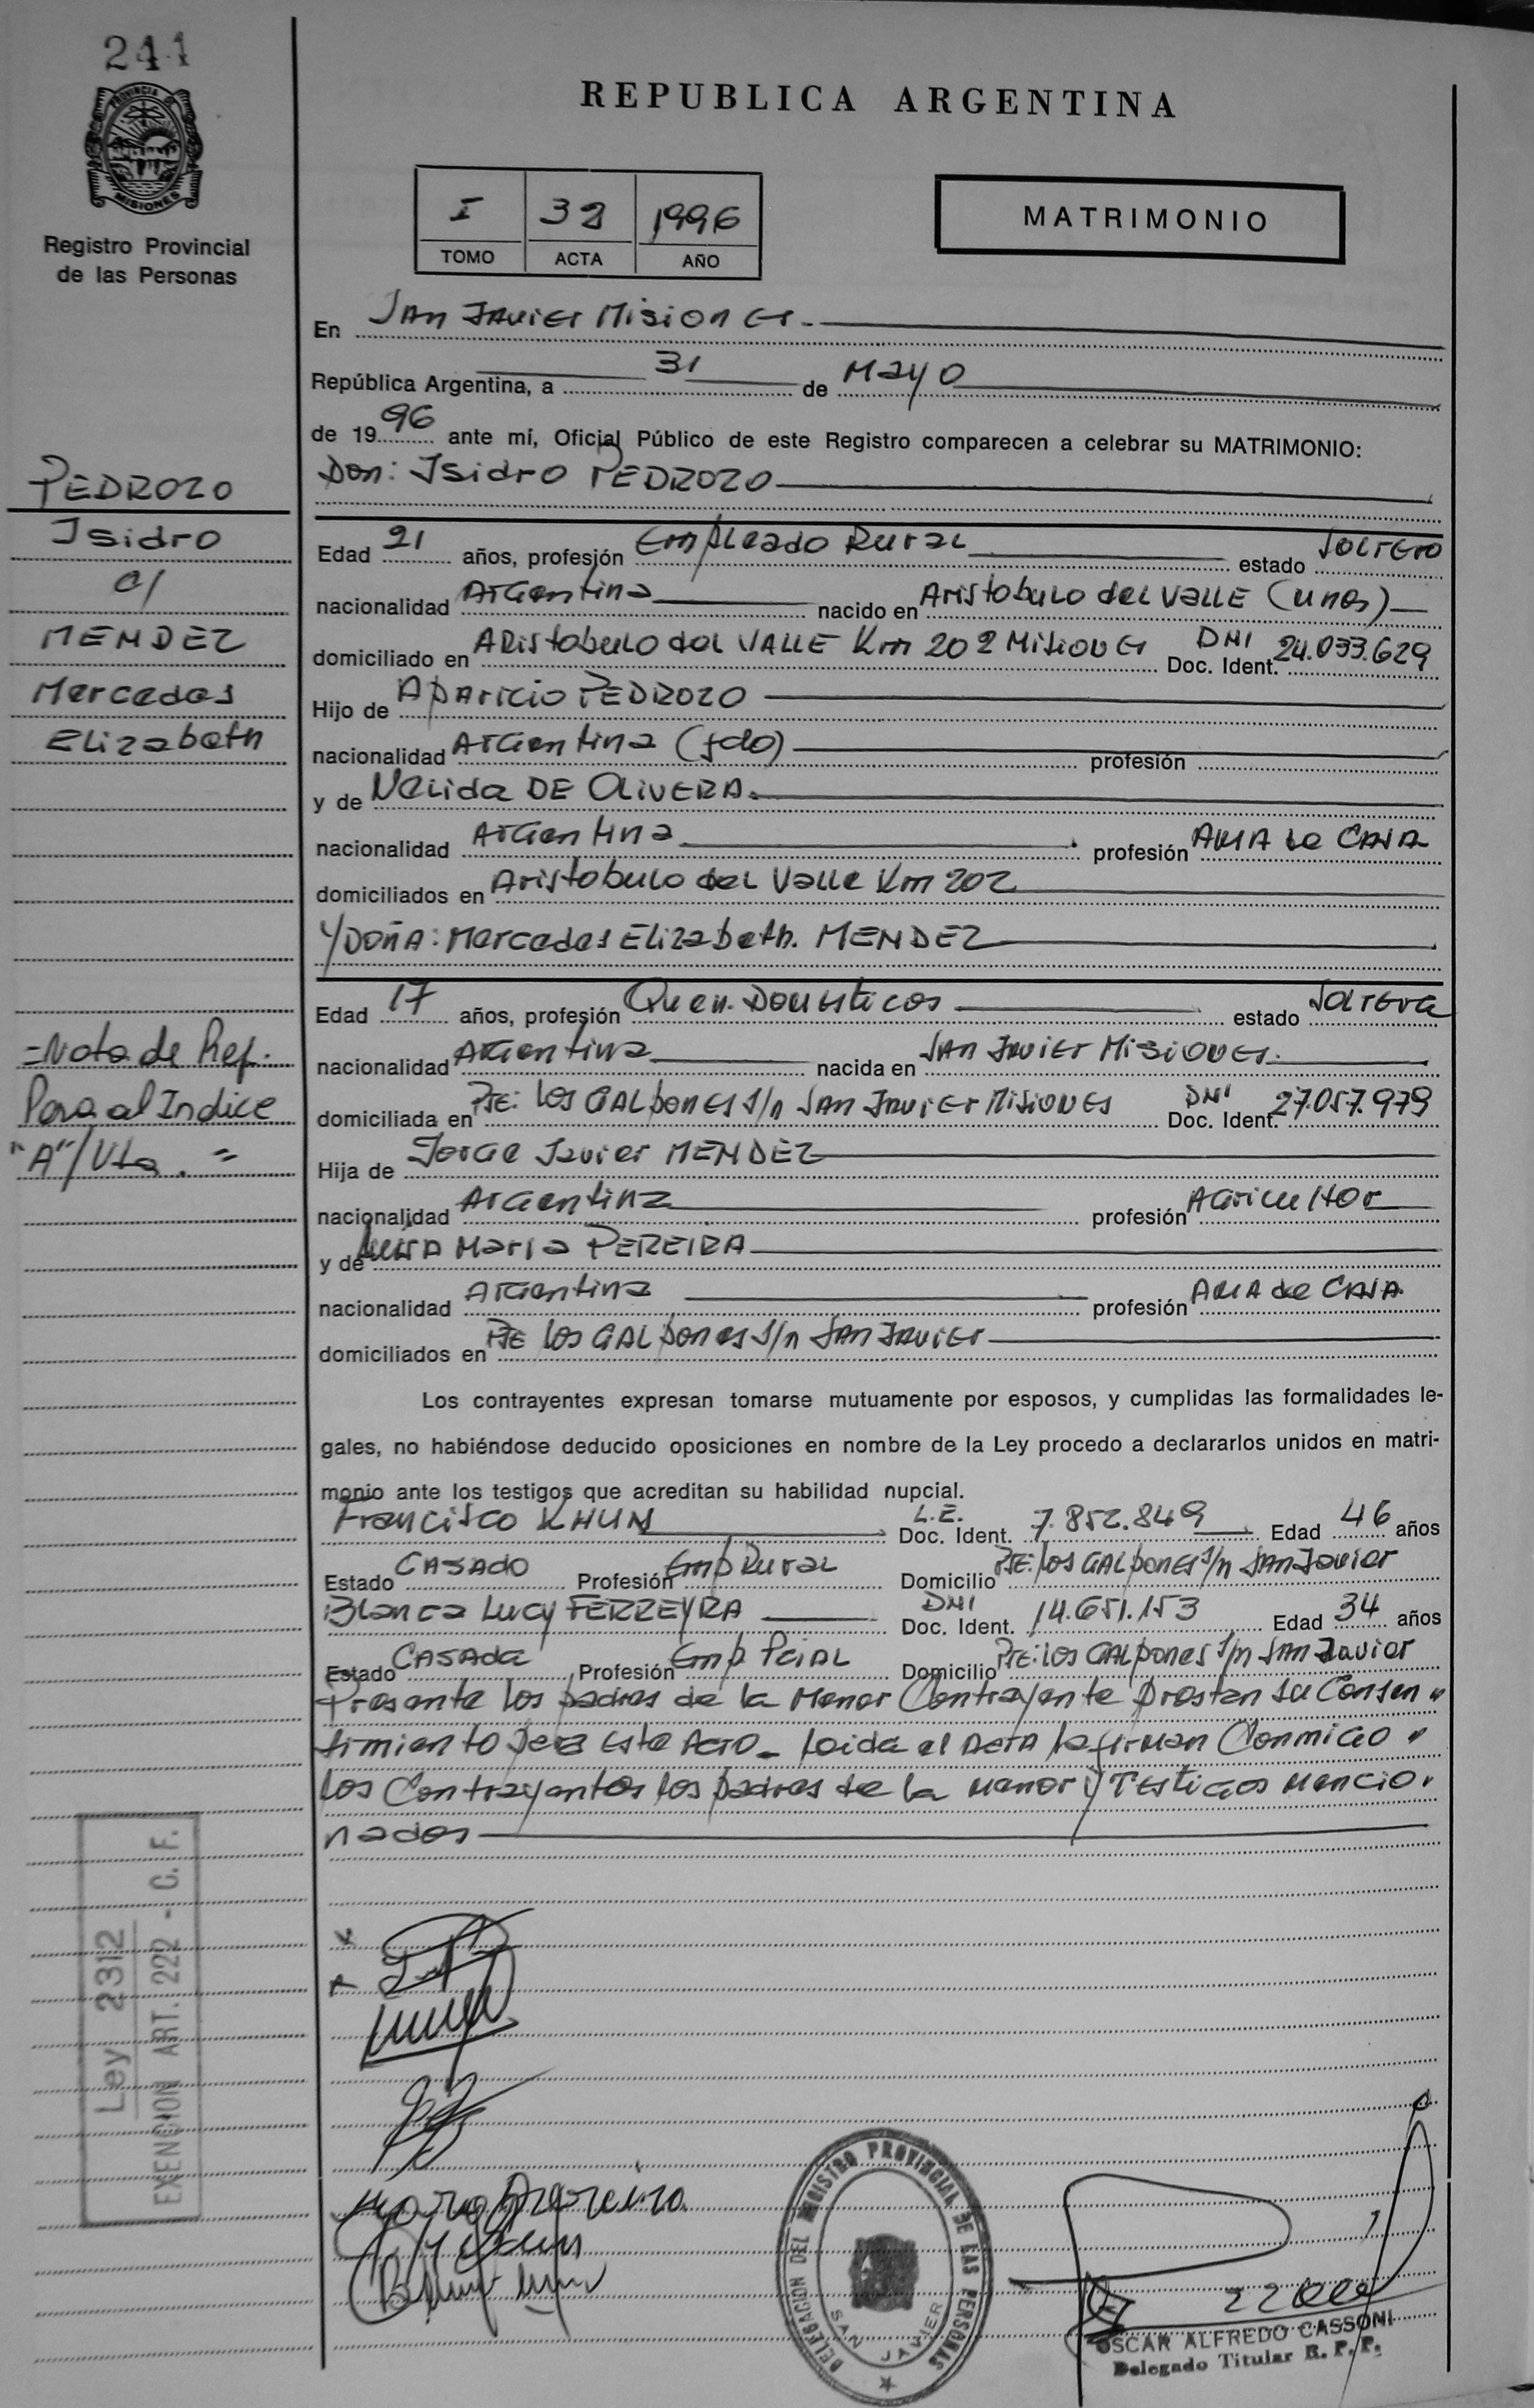 241
PROVINCIA DE
MISIONES
Registro Provincial
de las Personas
REPUBLICA ARGENTINA
I 32 1996
TOMO ACTA AÑO
MATRIMONIO
En San Javier Misiones.
República Argentina, a 31 de Mayo
de 1996 ante mí, Oficial Público de este Registro comparecen a celebrar su MATRIMONIO:
Don: Isidro PEDROZO
Edad 21 años, profesión Empleado Rural estado Soltero
nacionalidad Argentina nacido en Aristobulo del Valle (Unes)
domiciliado en Aristobulo del Valle Km 202 Misiones DNI Doc. Ident. 24.033.629
Hijo de Aparicio PEDROZO
nacionalidad Argentina (fdo) profesión
y de Nelida DE OLIVERA.
nacionalidad Argentina profesión Ama de Casa
domiciliados en Aristobulo del Valle Km 202
Y DOÑA: Mercedes Elizabeth. MENDEZ
Edad 17 años, profesión Queh. Domesticos estado Soltera
nacionalidad Argentina nacida en San Javier Misiones.
domiciliada en Pje: Los Galpones s/n San Javier Misiones DNI Doc. Ident. 27.057.979
Hija de Jorge Javier MENDEZ
nacionalidad Argentina profesión Agricultor
y de María PEREIRA
nacionalidad Argentina profesión Ama de Casa.
domiciliados en Pje Los Galpones s/n San Javier
Los contrayentes expresan tomarse mutuamente por esposos, y cumplidas las formalidades le-
gales, no habiéndose deducido oposiciones en nombre de la Ley procedo a declararlos unidos en matri-
monio ante los testigos que acreditan su habilidad nupcial.
Francisco KHUN L.E. Doc. Ident. 7.852.849 Edad 46 años
Estado Casado Profesión Emp Rural Domicilio Pje: Los Galpones s/n San Javier
Blanca Lucy FERREYRA DNI Doc. Ident. 14.651.153 Edad 34 años
Estado Casada Profesión Emp Pcial Domicilio Pje: Los Galpones s/n San Javier
Presente los padres de la Menor Contrayente prestan su Consen "
timiento para este Acto_ Leida el Acta la firman Conmigo "
los Contrayentes los padres de la menor y Testigos mencio.
nados
PEDROZO
Isidro
c/
MENDEZ
Mercedes
Elizabeth
=Nota de Ref.
Pasa al Indice
"A"/Vta. =
Ley 2312
EXENCION ART. 222 - C. F.
DELEGACION DEL REGISTRO PROVINCIAL DE LAS PERSONAS
SAN JAVIER
OSCAR ALFREDO CASSONI
Delegado Titular R. P. P.